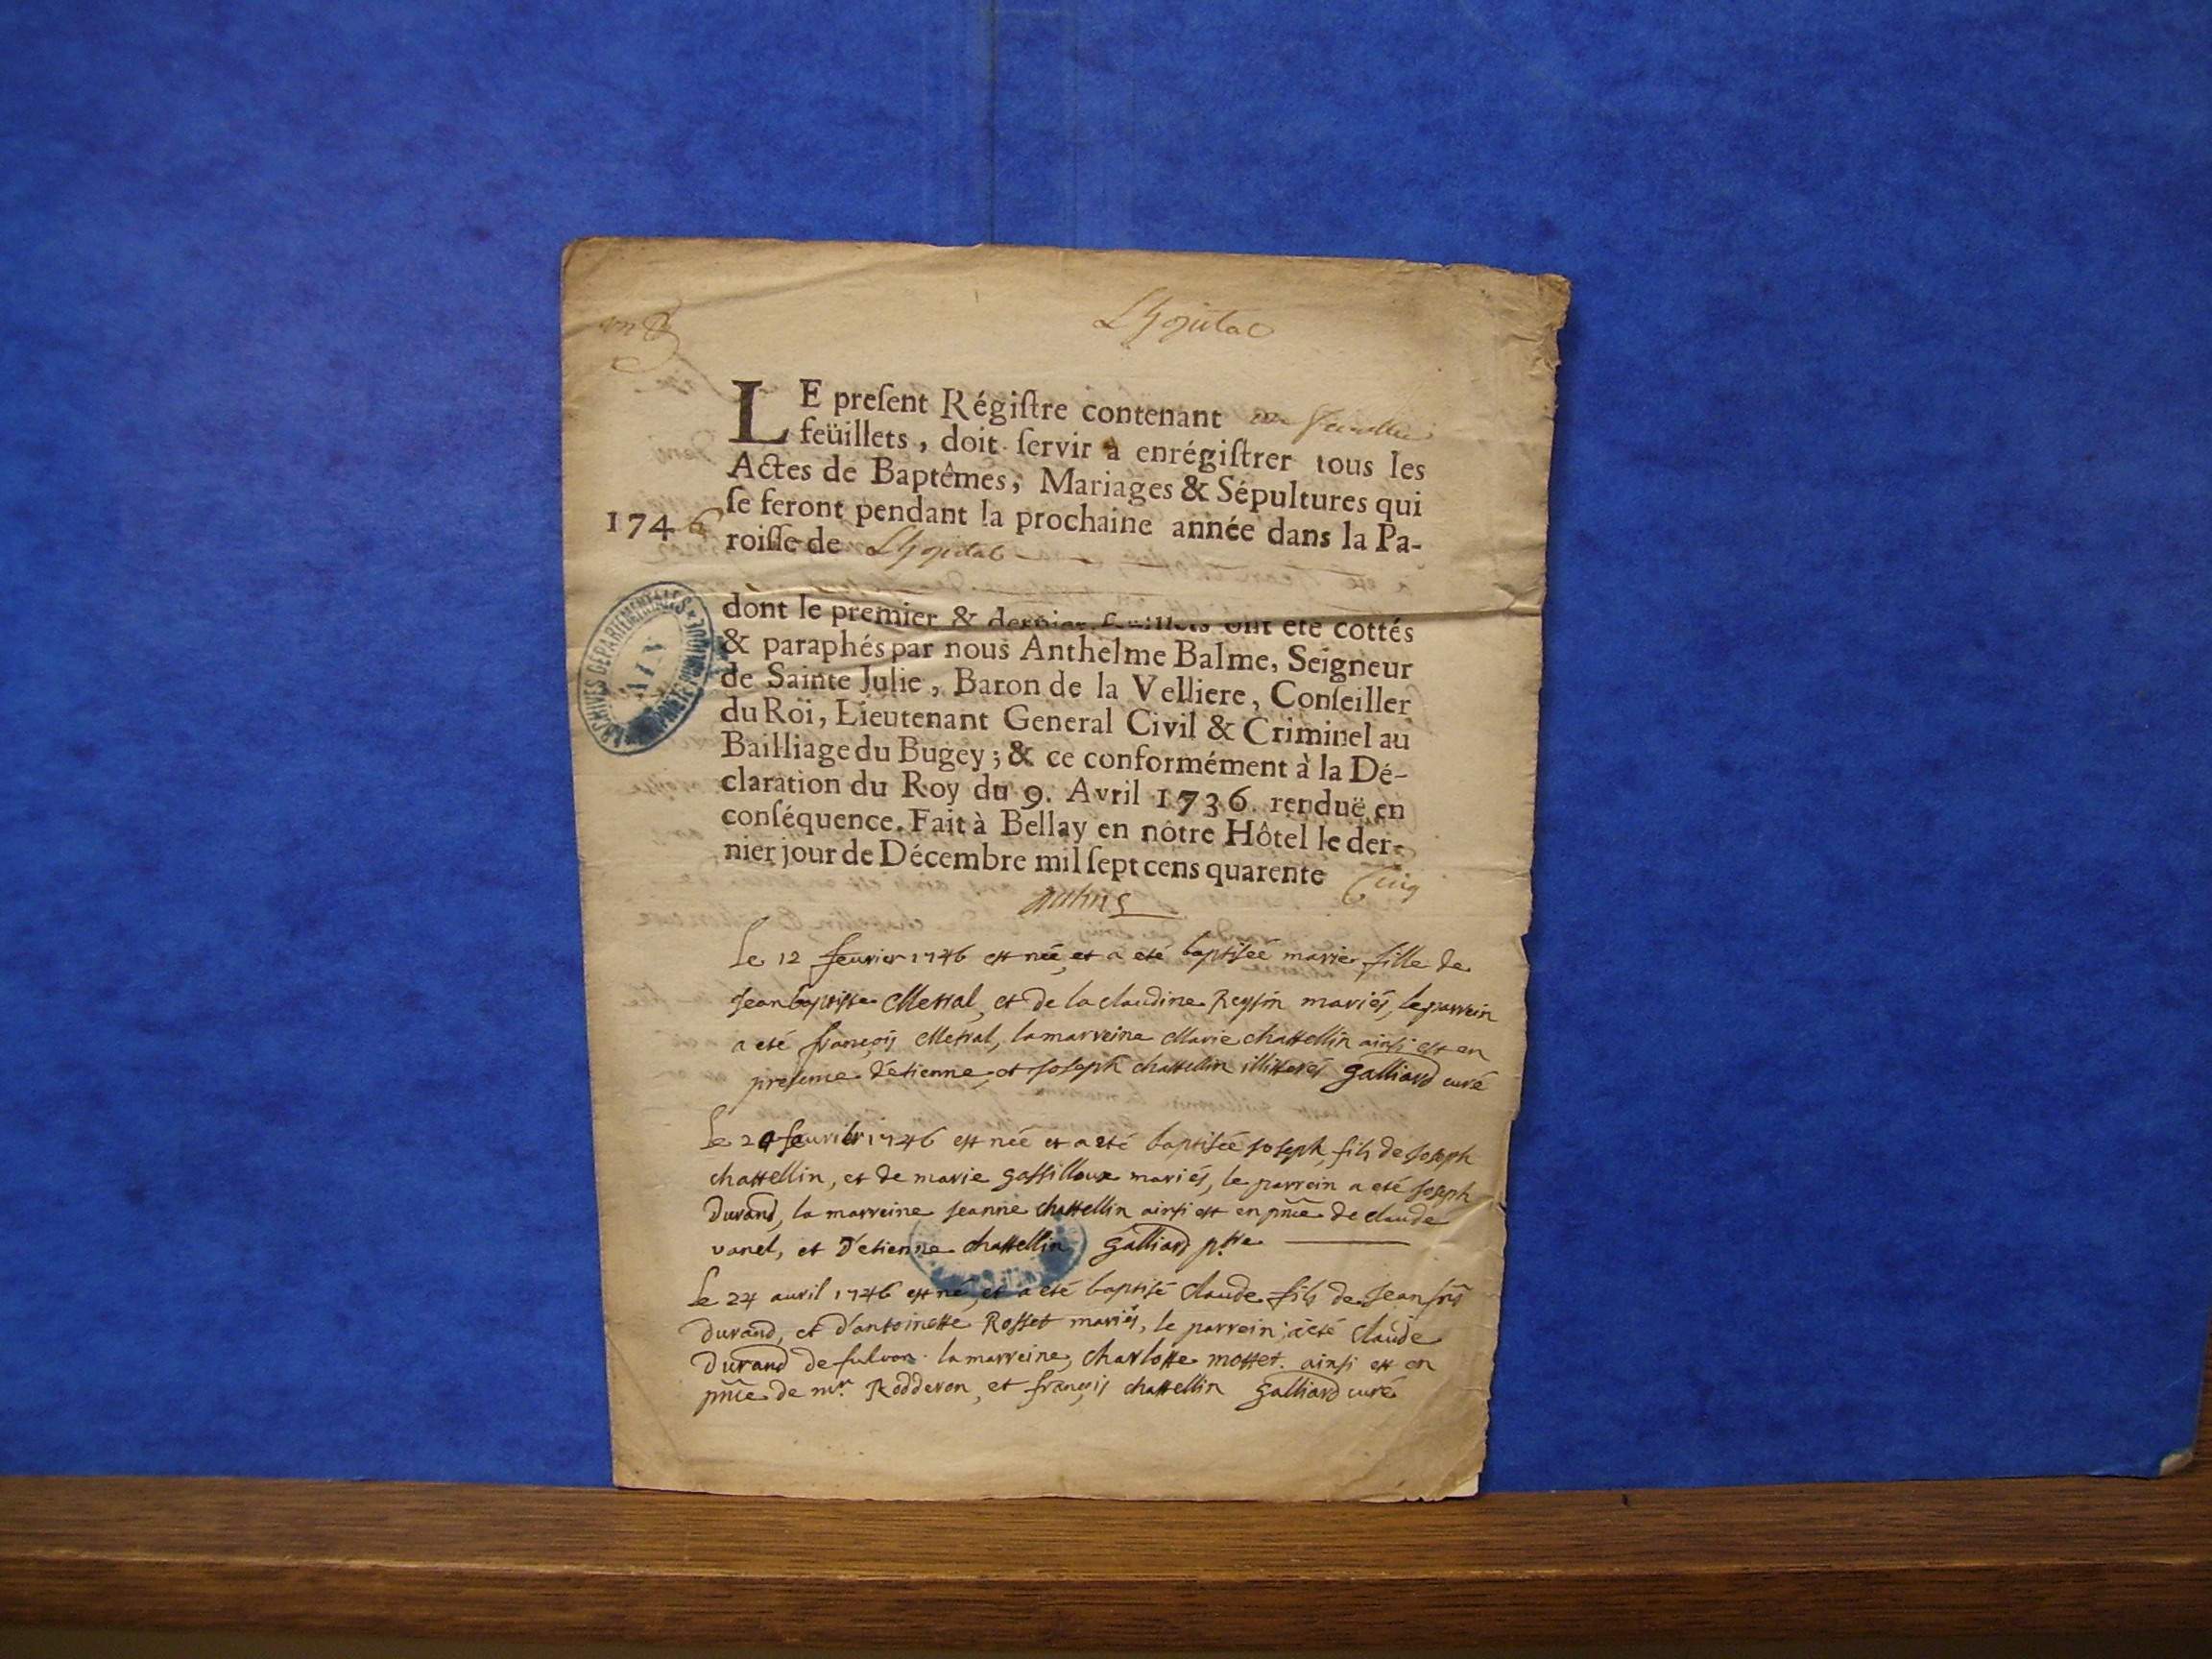 Lhopital
LE preſent Régiſtre contenant un feuillet
feüillets, doit ſervir à enrégiſtrer tous les
Actes de Baptêmes, Mariages & Sépultures qui
ſe feront pendant la prochaine année dans la Pa-
1746
roiſſe de Lhopital
dont le premier & dernier feüillets ont été cottés
& paraphés par nous Anthelme Balme, Seigneur
de Sainte Julie, Baron de la Velliere, Conſeiller
du Roi, Lieutenant General Civil & Criminel au
Bailliage du Bugey; & ce conformément à la Dé-
claration du Roy du 9. Avril 1736. renduë en
conſéquence. Fait à Bellay en nôtre Hôtel le der-
nier jour de Décembre mil ſept cens quarente Cinq
ARCHIVES DÉPARTEMENTALES
AIN
Le 12 feurier 1746 est née et a eté baptiseé marie fille de
Jean baptiste Mesral, et de la claudine Reyſin mariés, le parrein
a eté françois Mesral, la marreine Marie chattellin ainsi est en
presence d'etienne et joseph chattellin illitterés galliard curé
Le 24 feurier 1746 est neé et a eté baptiseé joseph, fils de joseph
chattellin, et de marie gaſſilloux mariés, le parrein a eté joseph
Durand, la marreine jeanne chattellin ainsi est en pñce de claude
vanel, et d'etienne chattellin galliard p.tre
Le 24 auril 1746 est né, et a eté baptisé claude fils de Jean frs
Durand, et d'antoinette Rosset mariés, le parrein, a eté claude
Durand de fulvon la marreine, charlotte mottet. ainsi est en
pñce de mr. Rodderon, et françois chattellin galliard curé